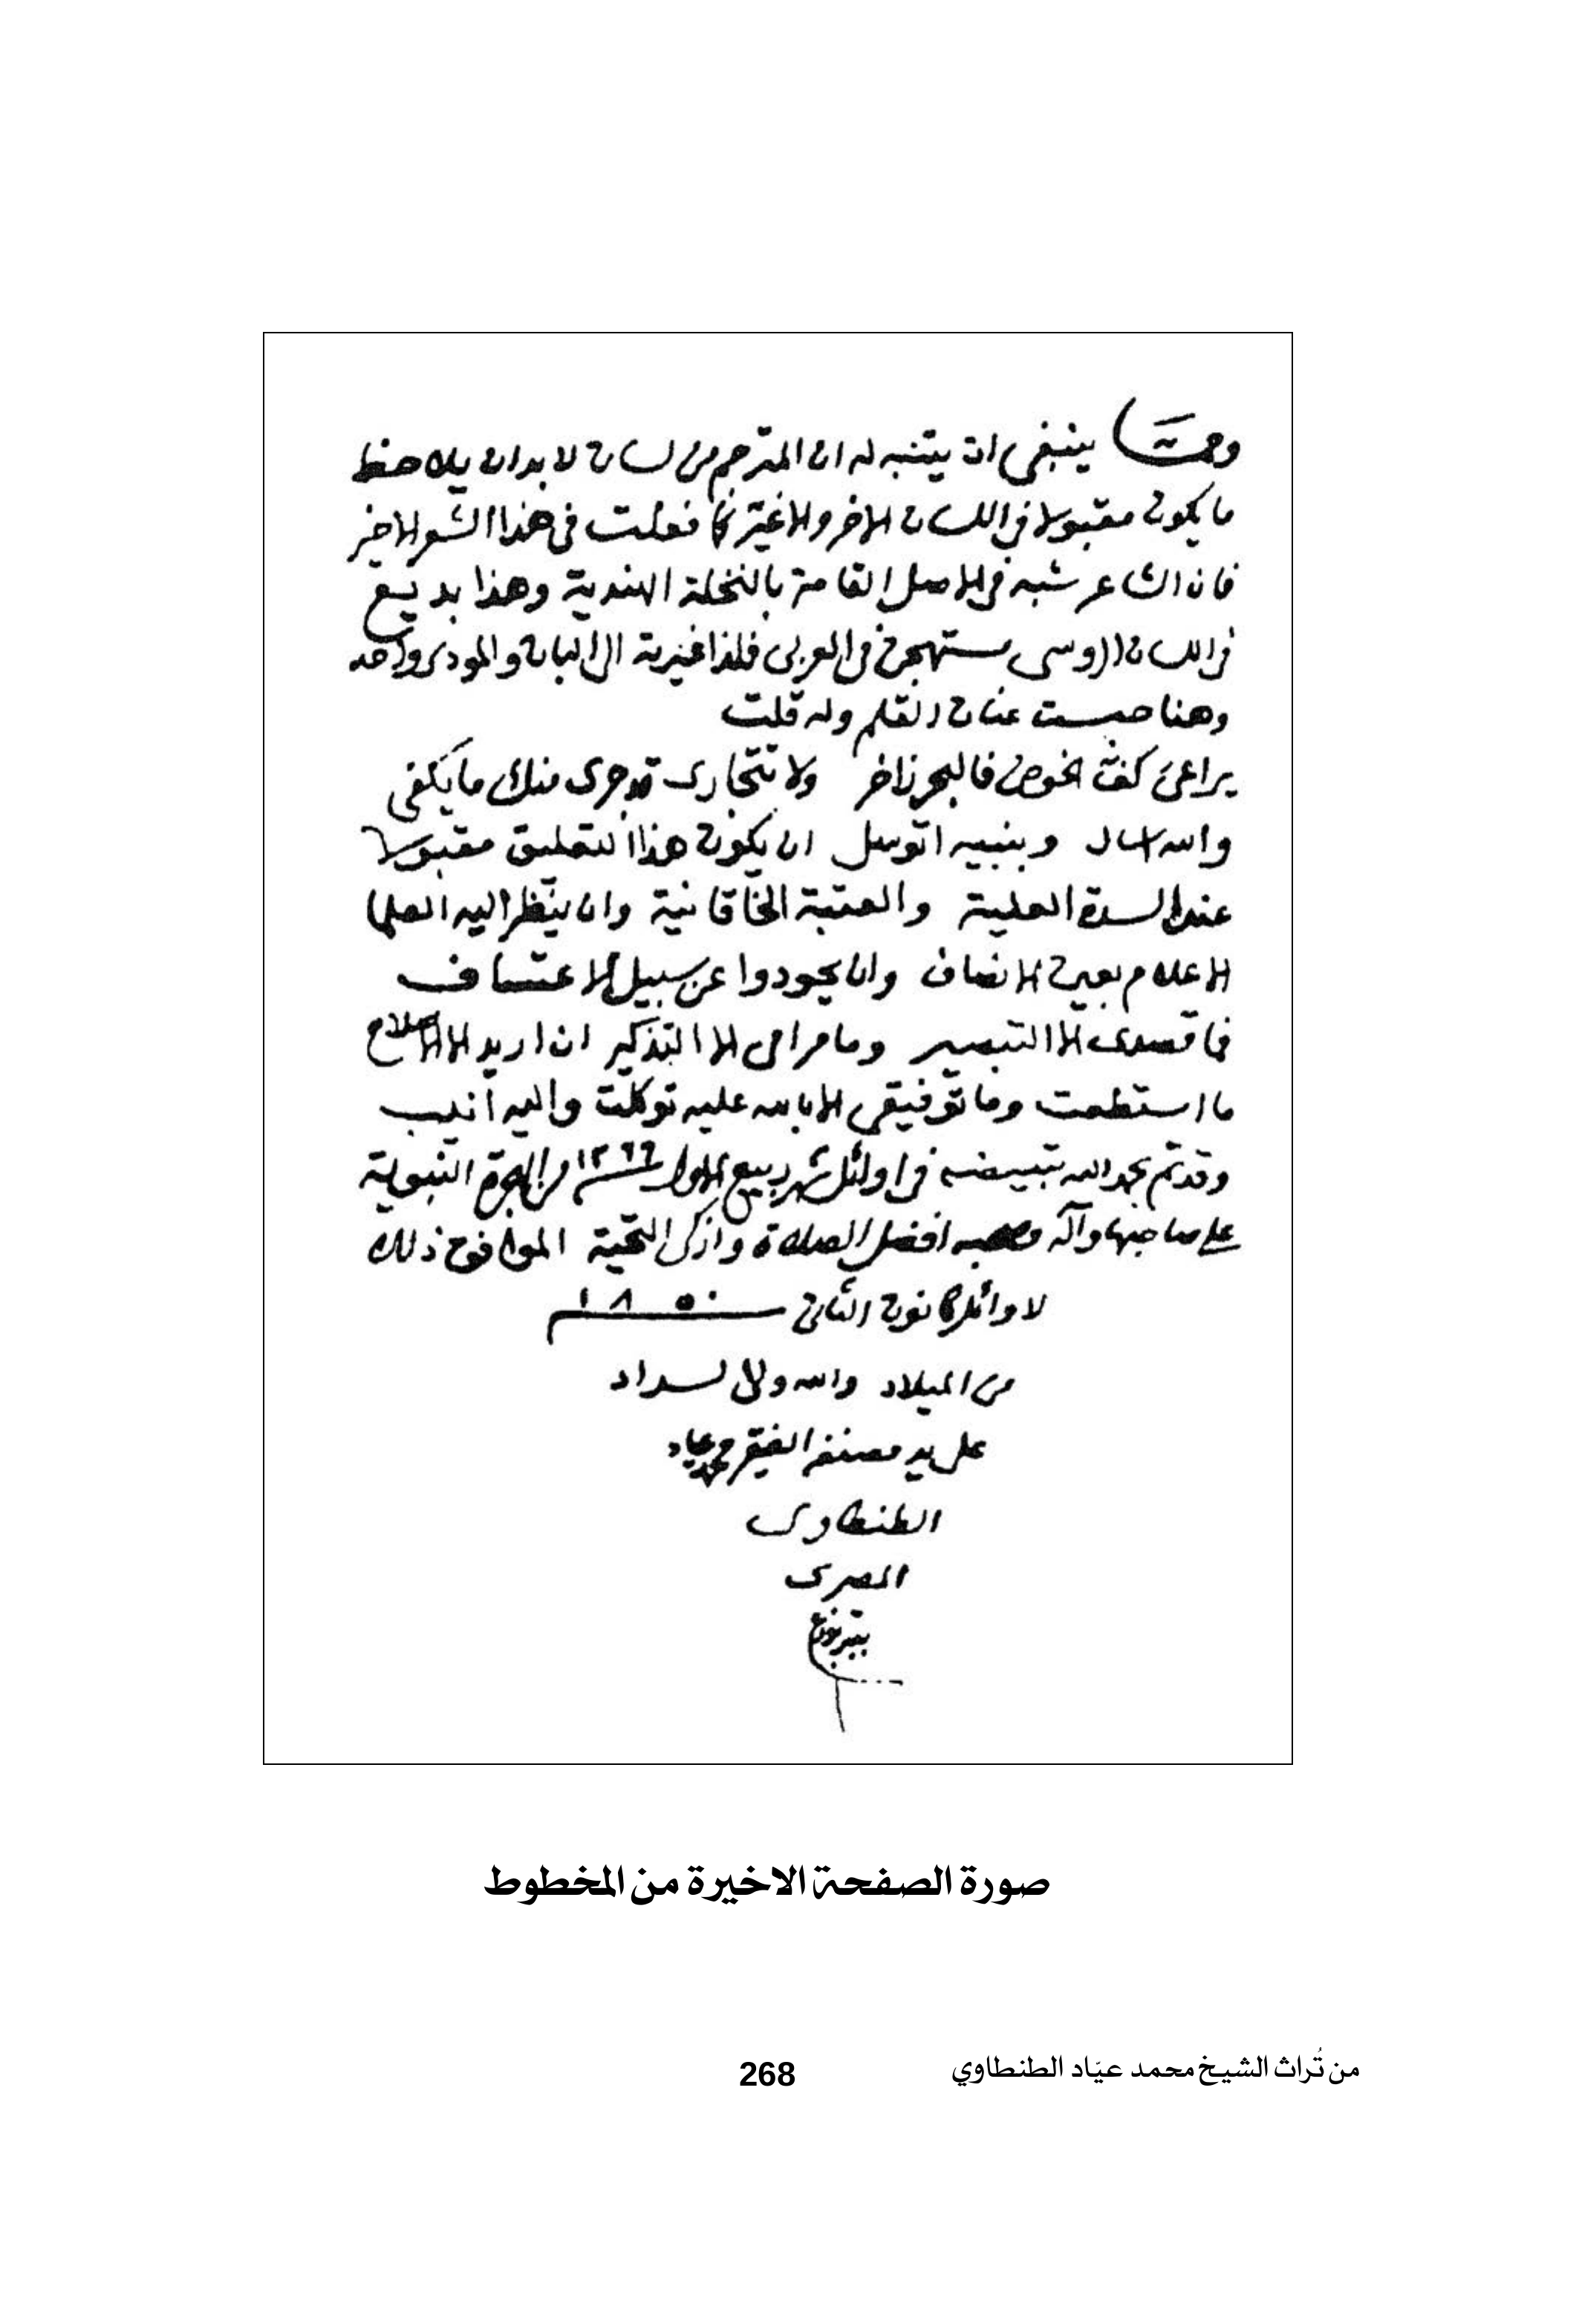 ومما ينبغى ان يتنبه له ان المترجم من لسان لا بد ان يلاحظ
ما يكون مقبولا فى اللسان الاخر والا غير كما فعلت فى هذا الشعر الاخير
فان الشاعر شبه فى الاصل القامة بالنخلة الهندية وهذا بديع
فى اللسان الروسى مستهجن فى العربى فلذا غيرته الى البان والمودى واحد
وهنا حبست عنان القلم وله قلت
يراعى كف الخوض فالبحر زاخر ولا تتجارى قد جرى منك ما يكفى
والله اسال وبنبيه اتوسل ان يكون هذا التعليق مقبولا
عند السدة العلية والعتبة الخاقانية وان ينظر اليه العلما
الاعلام بعين الانصاف وان يحودوا عن سبيل الاعتساف
فما قصدى الا التبصير وما مرامى الا التذكير ان اريد الا الاصلاح
ما استطعت وما توفيقى الا بالله عليه توكلت واليه انيب
وقد تم بحمد الله تبييضه فى اوائل شهر ربيع الاول سنة ١٢٦٦ من الهجرة النبوية
على صاحبها وآله وصحبه افضل الصلاة وازكى التحية الموافق ذلك
لاوائل كانون الثانى سنة ١٨٥٠
من الميلاد والله ولى السداد
على يد مصنفه الفقير محمد عياد
الطنطاوى
المصرى
صورة الصفحة الاخيرة من المخطوط
من تُراث الشيخ محمد عيّاد الطنطاوي
268